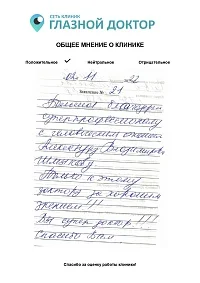 СЕТЬ КЛИНИК
ГЛАЗНОЙ ДОКТОР
ОБЩЕЕ МНЕНИЕ О КЛИНИКЕ
Положительное ✓ Нейтральное Отрицательное
02 11 22
№ 21
огромное
Александру Владимировичу
Только к этому
доктору за хорошим
зрением!!!
Вы супер доктор!!!
Спасибо Вам
Спасибо за оценку работы клиники!